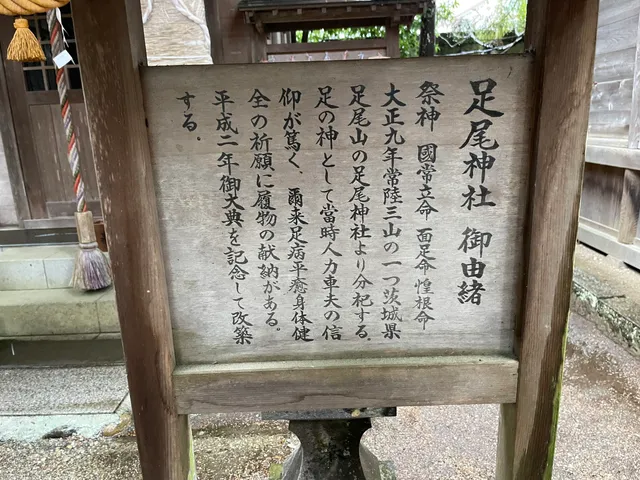 足尾神社 御由緒
祭神 國常立命 面足命 惶根命
大正九年常陸三山の一つ茨城県
足尾山の足尾神社より分祀する。
足の神として當時人力車夫の信
仰が篤く、爾来足病平癒身体健
全の祈願に履物の献納がある。
平成二年御大典を記念して改築
する。